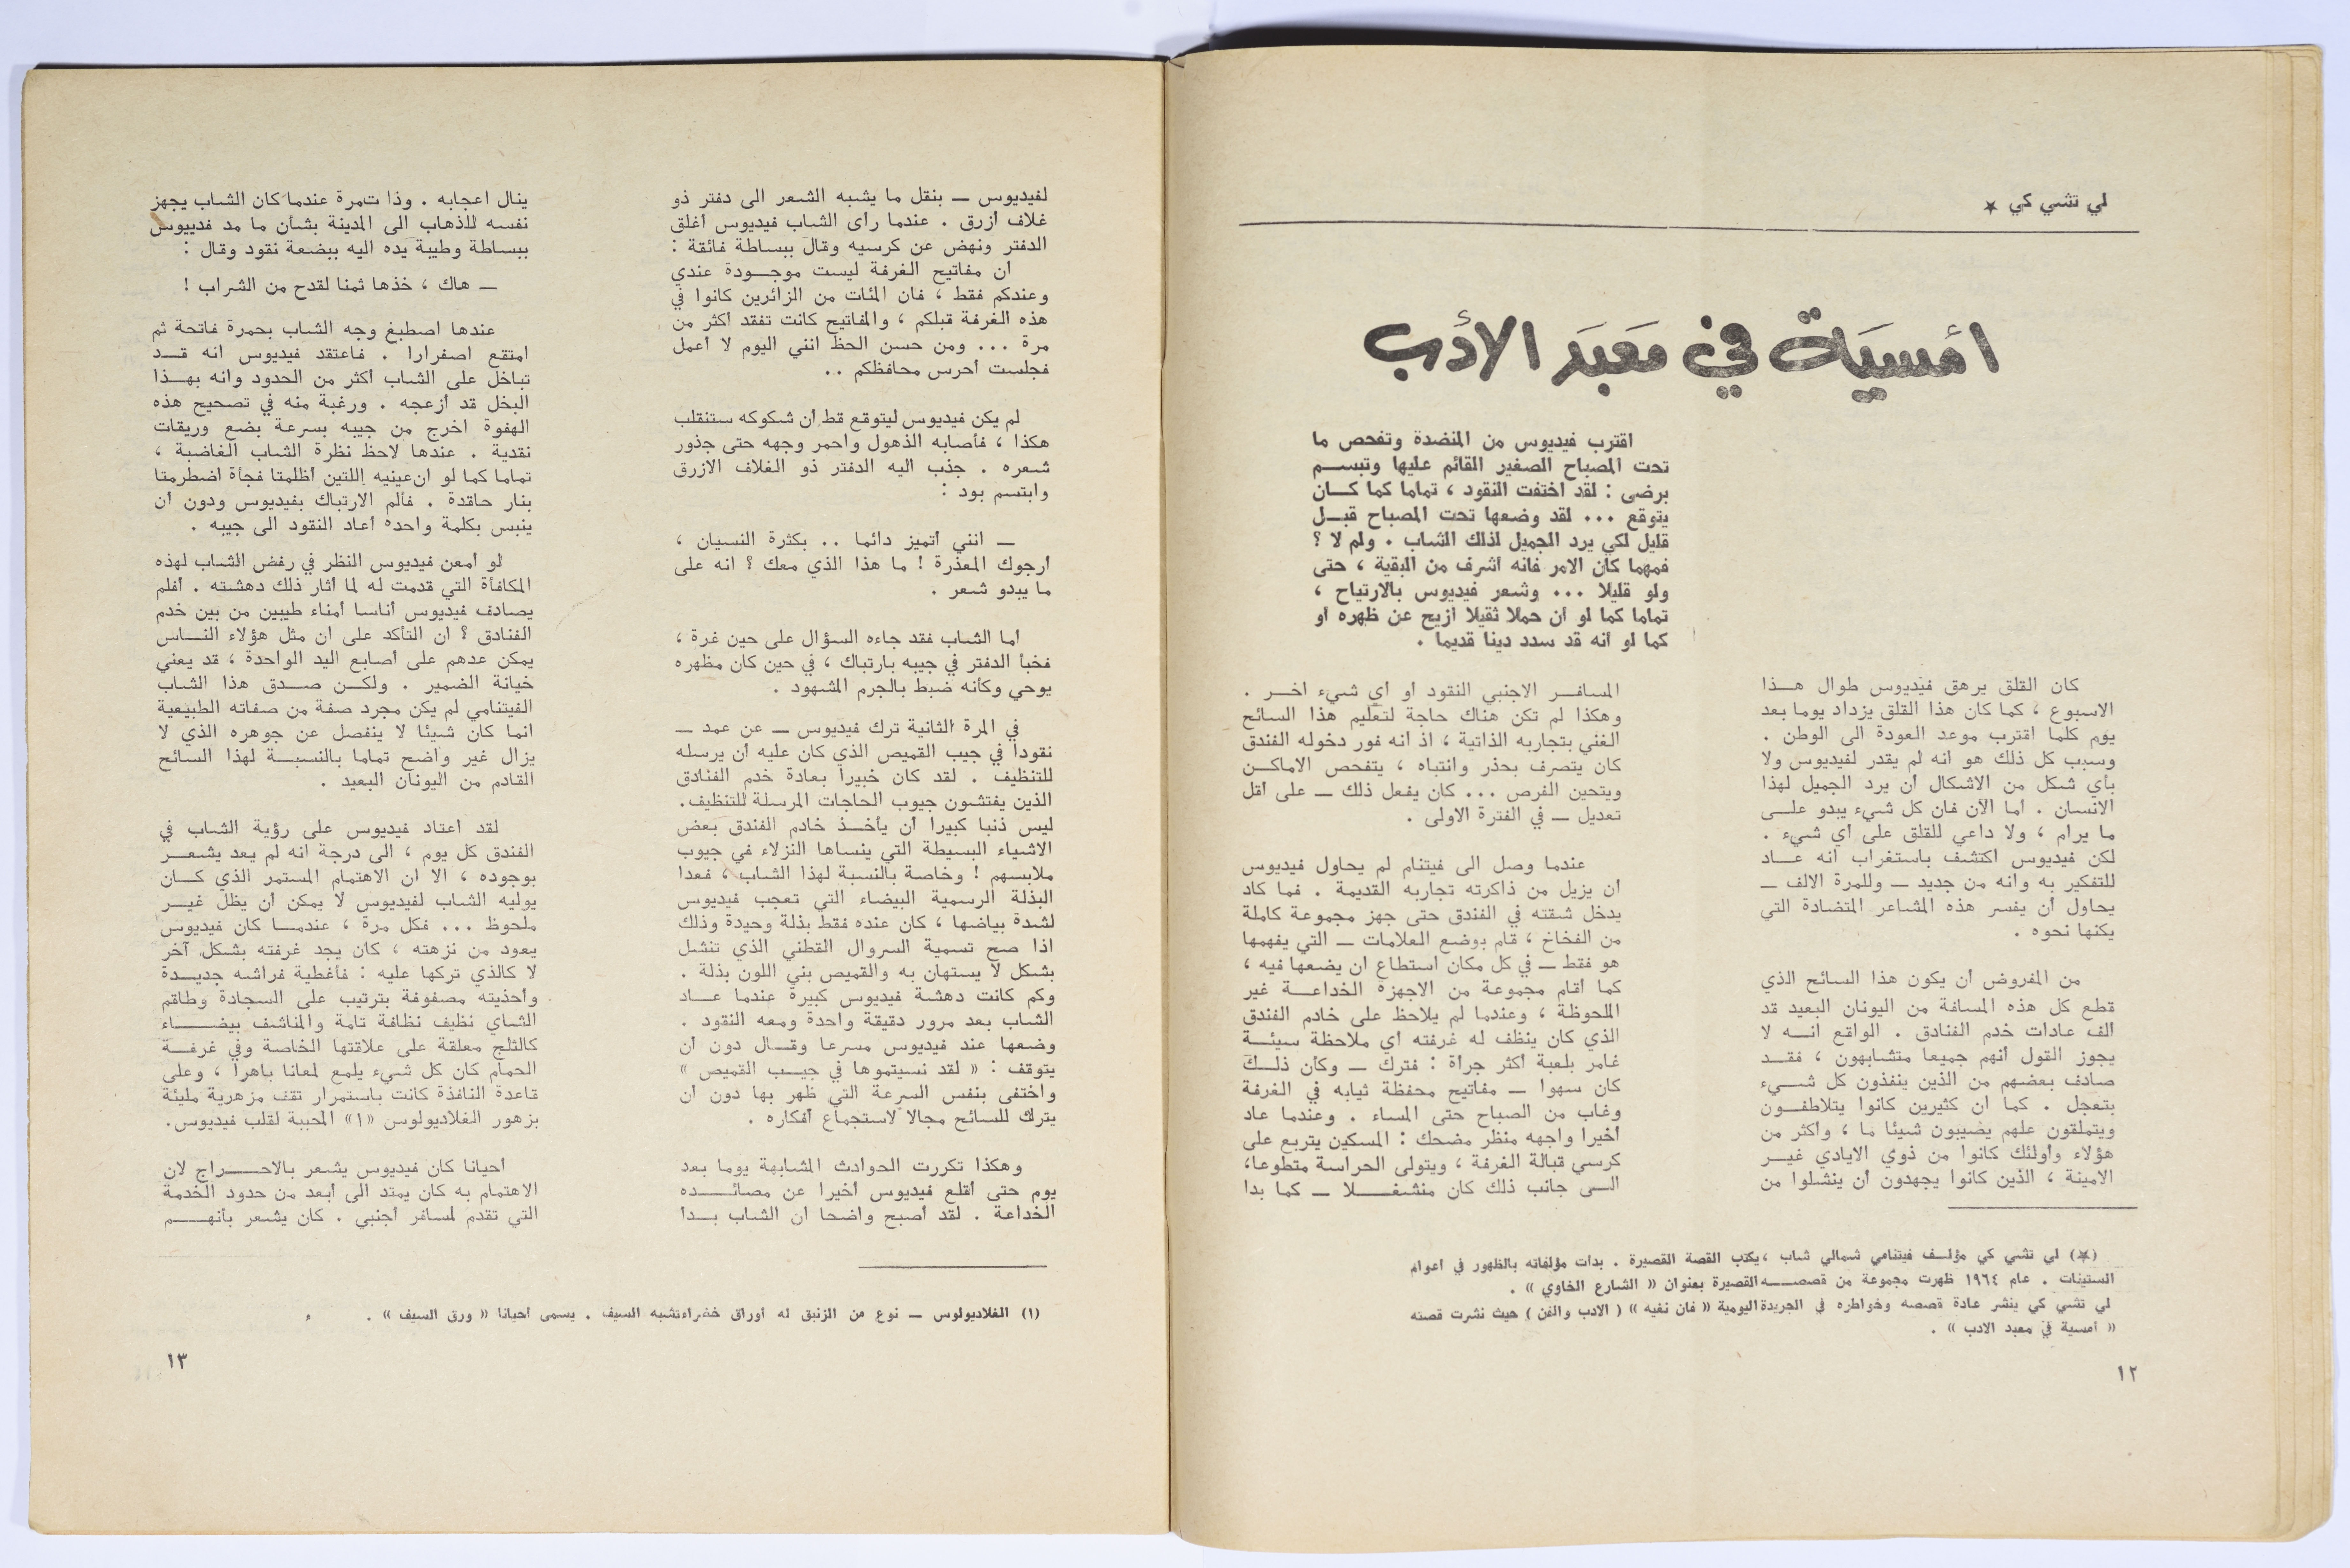 لي تشي كي ★
أمسيَة في مَعبَد الأدَب
اقترب فيديوس من المنضدة وتفحص ما
تحت المصباح الصغير القائم عليها وتبسـم
برضى : لقد اختفت النقود ، تماما كما كـان
يتوقع ... لقد وضعها تحت المصباح قبـل
قليل لكي يرد الجميل لذلك الشاب . ولم لا ؟
فمهما كان الامر فانه أشرف من البقية ، حتى
ولو قليلا ... وشعر فيديوس بالارتياح ،
تماما كما لو أن حملا ثقيلا أزيح عن ظهره أو
كما لو أنه قد سدد دينا قديما .
كان القلق يرهق فيديوس طوال هـذا
الاسبوع ، كما كان هذا القلق يزداد يوما بعد
يوم كلما اقترب موعد العودة الى الوطن .
وسبب كل ذلك هو انه لم يقدر لفيديوس ولا
بأي شكل من الاشكال أن يرد الجميل لهذا
الانسان . أما الآن فان كل شيء يبدو علـى
ما يرام ، ولا داعي للقلق على أي شيء .
لكن فيديوس اكتشف باستغراب انه عـاد
للتفكير به وانه من جديد ــ وللمرة الالف ــ
يحاول أن يفسر هذه المشاعر المتضادة التي
يكنها نحوه .
من المفروض أن يكون هذا السائح الذي
قطع كل هذه المسافة من اليونان البعيد قد
ألف عادات خدم الفنادق . الواقع انـه لا
يجوز القول أنهم جميعا متشابهون ، فقـد
صادف بعضهم من الذين ينفذون كل شـيء
بتعجل . كما ان كثيرين كانوا يتلاطفـون
ويتملقون علهم يصيبون شيئا ما ، وأكثر من
هؤلاء وأولئك كانوا من ذوي الايادي غيـر
الامينة ، الذين كانوا يجهدون أن ينشلوا من
المسافـر الاجنبي النقود أو أي شيء آخـر .
وهكذا لم تكن هناك حاجة لتعليم هذا السائح
الغني بتجاربه الذاتية ، اذ انه فور دخوله الفندق
كان يتصرف بحذر وانتباه ، يتفحص الاماكـن
ويتحين الفرص ... كان يفعل ذلك ــ على أقل
تعديل ــ في الفترة الاولى .
عندما وصل الى فيتنام لم يحاول فيديوس
أن يزيل من ذاكرته تجاربه القديمة . فما كاد
يدخل شقته في الفندق حتى جهز مجموعة كاملة
من الفخاخ ، قام بوضع العلامات ــ التي يفهمها
هو فقط ــ في كل مكان استطاع ان يضعها فيه ،
كما أقام مجموعة من الاجهزة الخداعـة غير
الملحوظة ، وعندما لم يلاحظ على خادم الفندق
الذي كان ينظف له غرفته أي ملاحظة سيئـة
غامر بلعبة أكثر جرأة : فترك ــ وكأن ذلـك
كان سهوا ــ مفاتيح محفظة ثيابه في الغرفة
وغاب من الصباح حتى المساء . وعندما عاد
أخيرا واجهه منظر مضحك : المسكين يتربع على
كرسي قبالة الغرفة ، ويتولى الحراسة متطوعا،
الـى جانب ذلك كان منشغـلا ــ كما بدا
(★) لي تشي كي مؤلـف فيتنامي شمالي شاب ،يكتب القصة القصيرة . بدات مؤلفاته بالظهور في اعوام
الستينات . عام ١٩٦٤ ظهرت مجموعة من قصصـه القصيرة بعنوان « الشارع الخاوي » .
لي تشي كي ينشر عادة قصصه وخواطره في الجريدة اليومية « فان نفيه » ( الادب والفن ) حيث نشرت قصته
« أمسية في معبد الادب » .
١٢
لفيديوس ــ بنقل ما يشبه الشعر الى دفتر ذو
غلاف أزرق . عندما رأى الشاب فيديوس أغلق
الدفتر ونهض عن كرسيه وقال ببساطة فائقة :
ان مفاتيح الغرفة ليست موجـودة عندي
وعندكم فقط ، فان المئات من الزائرين كانوا في
هذه الغرفة قبلكم ، والمفاتيح كانت تفقد أكثر من
مرة ... ومن حسن الحظ انني اليوم لا أعمل
فجلست أحرس محافظكم ..
لم يكن فيديوس ليتوقع قط أن شكوكه ستنقلب
هكذا ، فأصابه الذهول واحمر وجهه حتى جذور
شعره . جذب اليه الدفتر ذو الغلاف الازرق
وابتسم بود :
ــ انني أتميز دائما .. بكثرة النسيان ،
أرجوك المعذرة ! ما هذا الذي معك ؟ انه على
ما يبدو شعر .
أما الشاب فقد جاءه السؤال على حين غرة ،
فخبأ الدفتر في جيبه بارتباك ، في حين كان مظهره
يوحي وكأنه ضبط بالجرم المشهود .
في المرة الثانية ترك فيديوس ــ عن عمد ــ
نقودا في جيب القميص الذي كان عليه أن يرسله
للتنظيف . لقد كان خبيرا بعادة خدم الفنادق
الذين يفتشون جيوب الحاجات المرسلة للتنظيف.
ليس ذنبا كبيرا أن يأخـذ خادم الفندق بعض
الاشياء البسيطة التي ينساها النزلاء في جيوب
ملابسهم ! وخاصة بالنسبة لهذا الشاب ، فعدا
البذلة الرسمية البيضاء التي تعجب فيديوس
لشدة بياضها ، كان عنده فقط بذلة وحيدة وذلك
اذا صح تسمية السروال القطني الذي تنشل
بشكل لا يستهان به والقميص بني اللون بذلة .
وكم كانت دهشة فيديوس كبيرة عندما عـاد
الشاب بعد مرور دقيقة واحدة ومعه النقود .
وضعها عند فيديوس مسرعا وقـال دون أن
يتوقف : « لقد نسيتموها في جيـب القميص »
واختفى بنفس السرعة التي ظهر بها دون أن
يترك للسائح مجالا لاستجماع أفكاره .
وهكذا تكررت الحوادث المشابهة يوما بعد
يوم حتى أقلع فيديوس أخيرا عن مصائـده
الخداعة . لقد أصبح واضحا ان الشاب بـدا
ينال اعجابه . وذا تمرة عندما كان الشاب يجهز
نفسه للذهاب الى المدينة بشأن ما مد فدييوس
ببساطة وطيبة يده اليه ببضعة نقود وقال :
ــ هاك ، خذها ثمنا لقدح من الشراب !
عندها اصطبغ وجه الشاب بحمرة فاتحة ثم
امتقع اصفرارا . فاعتقد فيديوس انه قـد
تباخل على الشاب أكثر من الحدود وانه بهـذا
البخل قد أزعجه . ورغبة منه في تصحيح هذه
الهفوة اخرج من جيبه بسرعة بضع وريقات
نقدية . عندها لاحظ نظرة الشاب الغاضبة ،
تماما كما لو ان عينيه اللتين أظلمتا فجأة اضطرمتا
بنار حاقدة . فألم الارتباك بفيديوس ودون أن
ينبس بكلمة واحدة أعاد النقود الى جيبه .
لو أمعن فيديوس النظر في رفض الشاب لهذه
المكافأة التي قدمت له لما أثار ذلك دهشته . أفلم
يصادف فيديوس أناسا أمناء طيبين من بين خدم
الفنادق ؟ ان التأكد على ان مثل هؤلاء النـاس
يمكن عدهم على أصابع اليد الواحدة ، قد يعني
خيانة الضمير . ولكـن صـدق هذا الشاب
الفيتنامي لم يكن مجرد صفة من صفاته الطبيعية
انما كان شيئا لا ينفصل عن جوهره الذي لا
يزال غير واضح تماما بالنسبـة لهذا السائح
القادم من اليونان البعيد .
لقد اعتاد فيديوس على رؤية الشاب في
الفندق كل يوم ، الى درجة انه لم يعد يشعـر
بوجوده ، الا ان الاهتمام المستمر الذي كـان
يوليه الشاب لفيديوس لا يمكن أن يظل غيـر
ملحوظ ... فكل مرة ، عندمـا كان فيديوس
يعود من نزهته ، كان يجد غرفته بشكل آخر
لا كالذي تركها عليه : فأغطية فراشه جديـدة
وأحذيته مصفوفة بترتيب على السجادة وطاقم
الشاي نظيف نظافة تامة والمناشف بيضـاء
كالثلج معلقة على علاقتها الخاصة وفي غرفـة
الحمام كان كل شيء يلمع لمعانا باهرا ، وعلى
قاعدة النافذة كانت باستمرار تقف مزهرية مليئة
بزهور الغلاديولوس «١» المحببة لقلب فيديوس.
أحيانا كان فيديوس يشعر بالاحـراج لان
الاهتمام به كان يمتد الى أبعد من حدود الخدمة
التي تقدم لمسافر أجنبي . كان يشعر بأنهـم
(١) الغلاديولوس ــ نوع من الزنبق له أوراق خضراء تشبه السيف . يسمى أحيانا « ورق السيف » .
١٣